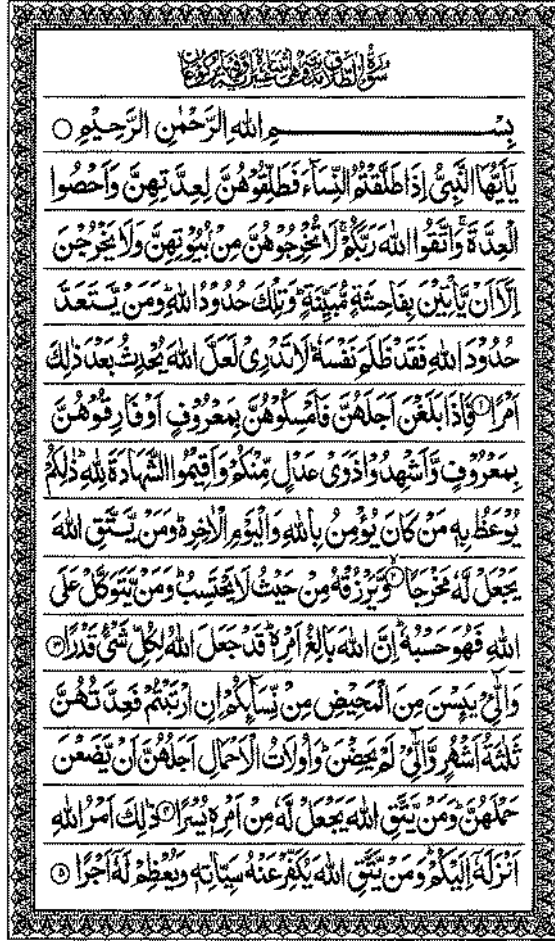 سُوْرَةُ الطَّلَاقِ مَدَنِيَّةٌ وَّهِيَ اثْنَتَا عَشْرَةَ اٰيَةً وَّفِيْهَا رُكُوْعَانِ
بِسْمِ اللهِ الرَّحْمٰنِ الرَّحِيْمِ ○
يٰۤاَيُّهَا النَّبِيُّ اِذَا طَلَّقْتُمُ النِّسَآءَ فَطَلِّقُوْهُنَّ لِعِدَّتِهِنَّ وَاَحْصُوا
الْعِدَّةَ ۚ وَاتَّقُوا اللهَ رَبَّكُمْ ۚ لَا تُخْرِجُوْهُنَّ مِنْۢ بُيُوْتِهِنَّ وَلَا يَخْرُجْنَ
اِلَّاۤ اَنْ يَّاْتِيْنَ بِفَاحِشَةٍ مُّبَيِّنَةٍ ؕ وَتِلْكَ حُدُوْدُ اللهِ ؕ وَمَنْ يَّتَعَدَّ
حُدُوْدَ اللهِ فَقَدْ ظَلَمَ نَفْسَهٗ ؕ لَا تَدْرِيْ لَعَلَّ اللهَ يُحْدِثُ بَعْدَ ذٰلِكَ
اَمْرًا ۝۱ فَاِذَا بَلَغْنَ اَجَلَهُنَّ فَاَمْسِكُوْهُنَّ بِمَعْرُوْفٍ اَوْ فَارِقُوْهُنَّ
بِمَعْرُوْفٍ وَّاَشْهِدُوْا ذَوَيْ عَدْلٍ مِّنْكُمْ وَاَقِيْمُوا الشَّهَادَةَ لِلهِ ؕ ذٰلِكُمْ
يُوْعَظُ بِهٖ مَنْ كَانَ يُؤْمِنُ بِاللهِ وَالْيَوْمِ الْاٰخِرِ ؕ وَمَنْ يَّتَّقِ اللهَ
يَجْعَلْ لَّهٗ مَخْرَجًا ۝۲ۙ وَّيَرْزُقْهُ مِنْ حَيْثُ لَا يَحْتَسِبُ ؕ وَمَنْ يَّتَوَكَّلْ عَلَى
اللهِ فَهُوَ حَسْبُهٗ ؕ اِنَّ اللهَ بَالِغُ اَمْرِهٖ ؕ قَدْ جَعَلَ اللهُ لِكُلِّ شَيْءٍ قَدْرًا ۝۳
وَالّٰٓـِٔيْ يَئِسْنَ مِنَ الْمَحِيْضِ مِنْ نِّسَآئِكُمْ اِنِ ارْتَبْتُمْ فَعِدَّتُهُنَّ
ثَلٰثَةُ اَشْهُرٍ وَّالّٰٓـِٔيْ لَمْ يَحِضْنَ ؕ وَاُولَاتُ الْاَحْمَالِ اَجَلُهُنَّ اَنْ يَّضَعْنَ
حَمْلَهُنَّ ؕ وَمَنْ يَّتَّقِ اللهَ يَجْعَلْ لَّهٗ مِنْ اَمْرِهٖ يُسْرًا ۝۴ ذٰلِكَ اَمْرُ اللهِ
اَنْزَلَهٗۤ اِلَيْكُمْ ؕ وَمَنْ يَّتَّقِ اللهَ يُكَفِّرْ عَنْهُ سَيِّاٰتِهٖ وَيُعْظِمْ لَهٗۤ اَجْرًا ۝۵